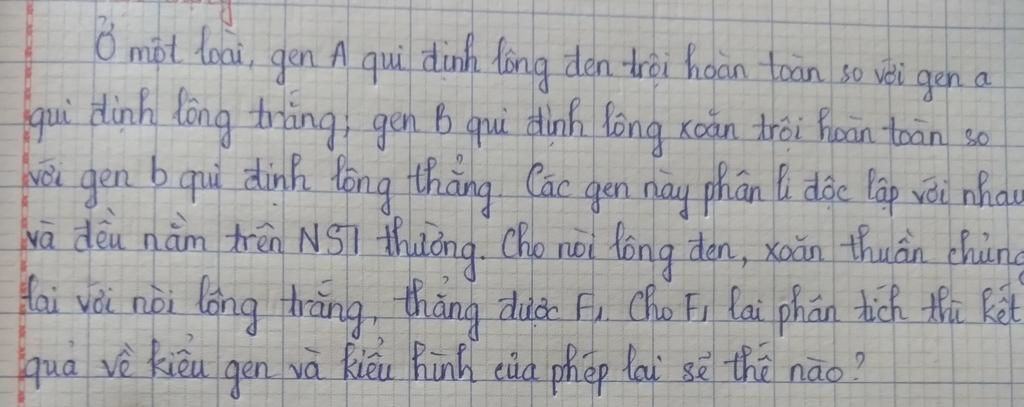 Ở một loài, gen A qui định lông đen trội hoàn toàn so với gen a
qui định lông trắng, gen B qui định lông xoăn trội hoàn toàn so
với gen b qui định lông thẳng. Các gen này phân li độc lập với nhau
và đều nằm trên NST thường. Cho nòi lông đen, xoăn thuần chủng
lai với nòi lông trắng, thẳng được F1. Cho F1 lai phân tích thì kết
quả về kiểu gen và kiểu hình của phép lai sẽ thế nào?